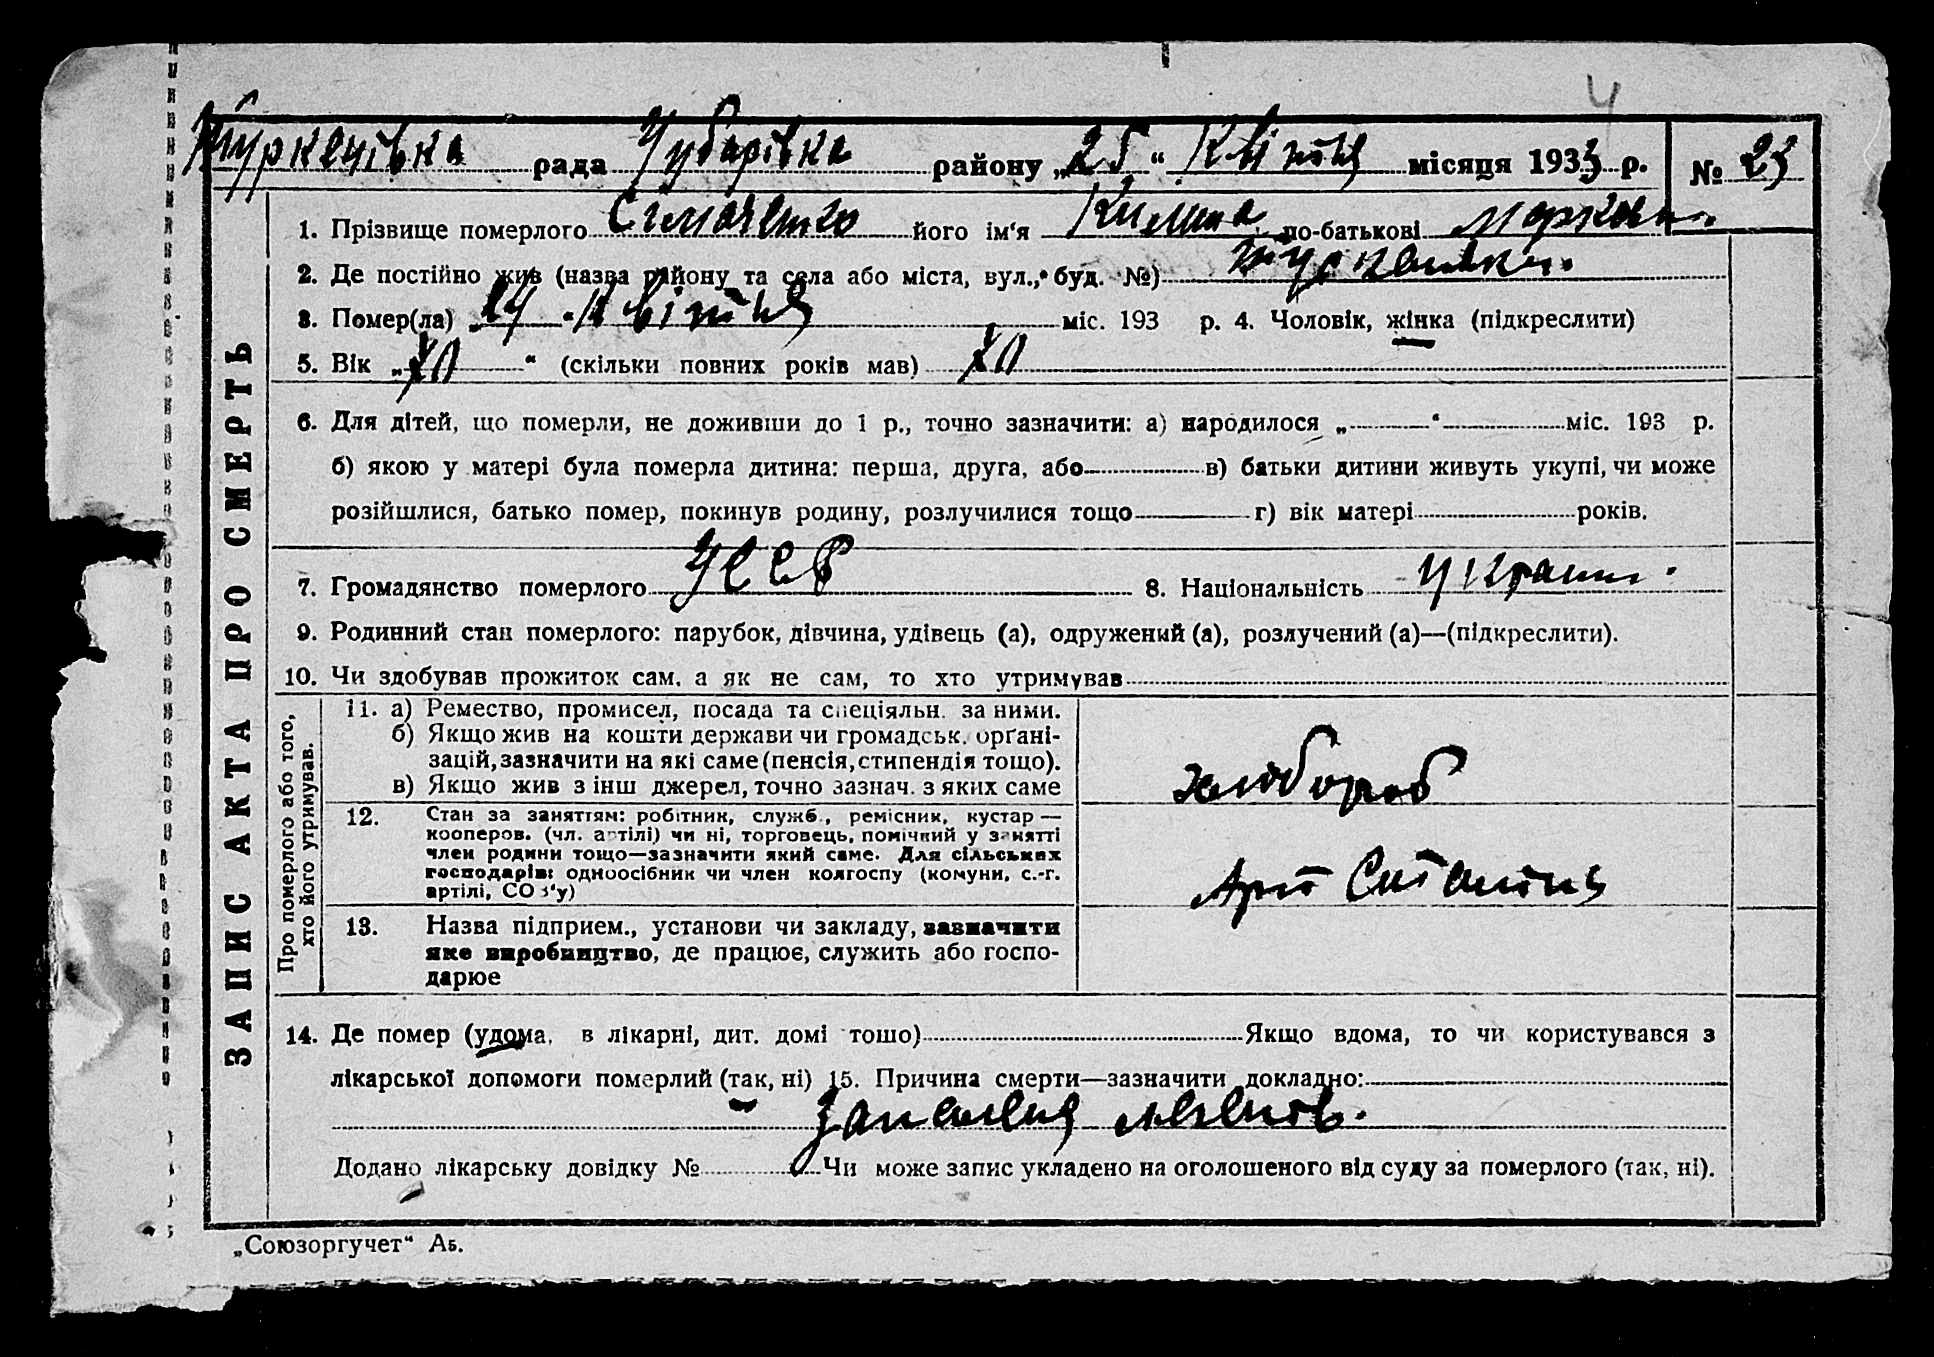 4
Туркенівка рада Чубарівка району „25“ Квітня місяця 1933 р. № 23
1. Прізвище померлого его ім'я по-батькові Марков.
2. Де постійно жив (назва району та села або міста, вул., буд. №)
3. Помер(ла) „24“ Квітня міс. 193 р. 4. Чоловік, жінка (підкреслити)
5. Вік „70“ (скільки повних років мав) 70
6. Для дітей, що померли, не доживши до 1 р., точно зазначити: а) народилося „ “ міс. 193 р.
б) якою у матері була померла дитина: перша, друга, або в) батьки дитини живуть укупі, чи може
розійшлися, батько помер, покинув родину, розлучилися тощо г) вік матері років.
7. Громадянство померлого УССР 8. Національність україн.
9. Родинний стан померлого: парубок, дівчина, удівець (а), одружений (а), розлучений (а)—(підкреслити).
10. Чи здобував прожиток сам, а як не сам, то хто утримував
ЗАПИС АКТА ПРО СМЕРТЬ
Про померлого або того,
хто його утримував.
11. а) Ремество, промисел, посада та спеціяльн. за ними.
б) Якщо жив на кошти держави чи громадськ. орґані-
зацій, зазначити на які саме (пенсія, стипендія тощо).
в) Якщо жив з інш джерел, точно зазнач. з яких саме
хлібороб
12. Стан за заняттям: робітник, служб., ремісник, кустар —
кооперов. (чл. артілі) чи ні, торговець, помічний у занятті
член родини тощо—зазначити який саме. Для сільських
господарів: одноосібник чи член колгоспу (комуни, с.-г.
артілі, СОЗ'у)
Арт
13. Назва підприєм., установи чи закладу, зазначити
яке виробництво, де працює, служить або госпо-
дарює
14. Де помер (удома, в лікарні, дит. домі тощо) Якщо вдома, то чи користувався з
лікарської допомоги померлий (так, ні) 15. Причина смерти—зазначити докладно:
Запалення легенів.
Додано лікарську довідку № Чи може запис укладено на оголошеного від суду за померлого (так, ні).
„Союзоргучет“ Аб.